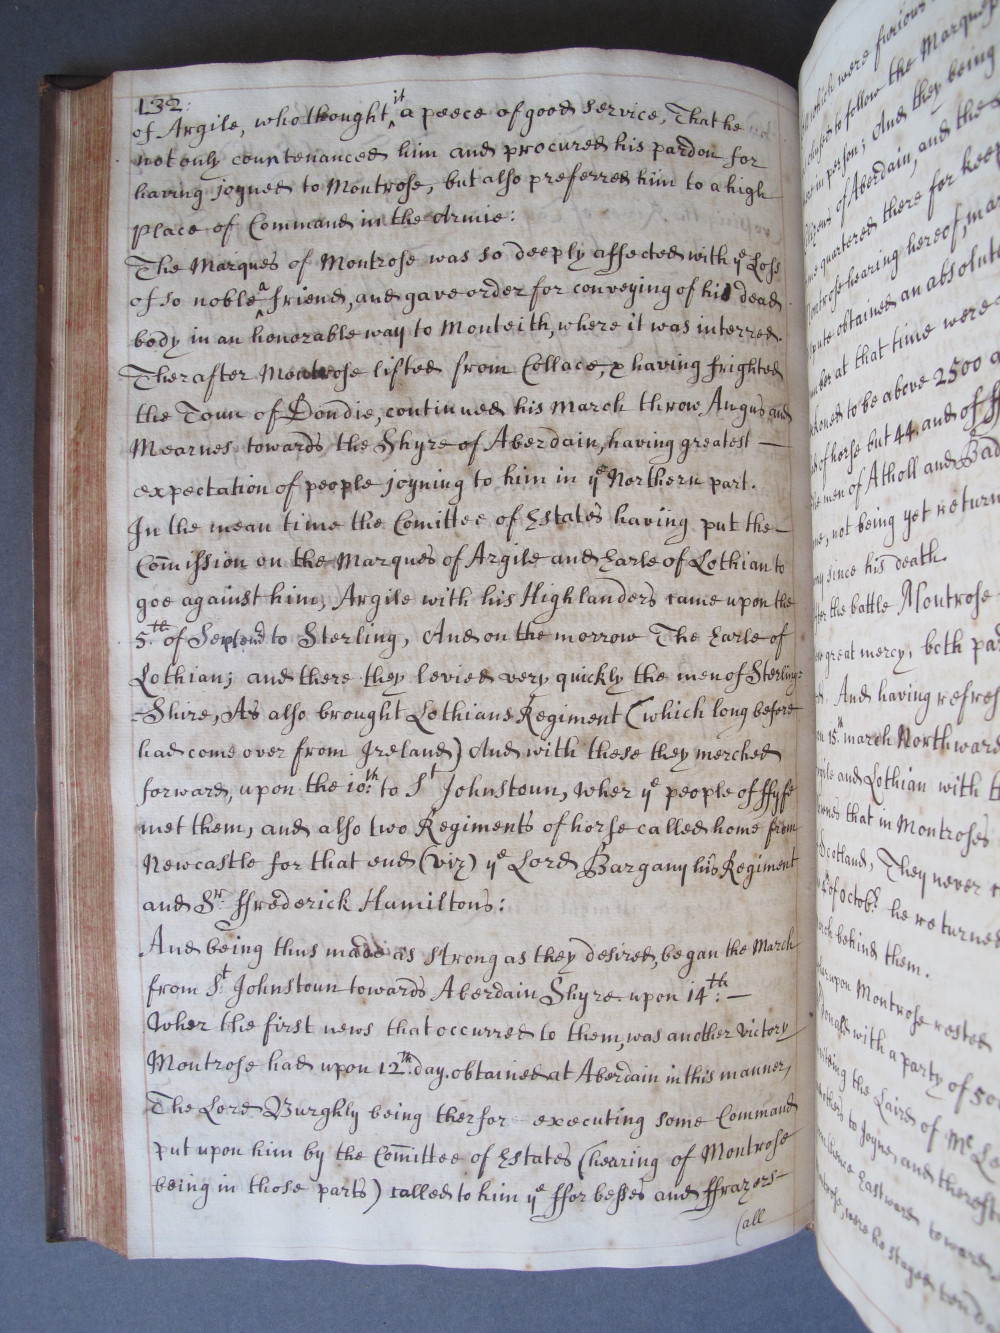 132:
of Argile, who thought it a peece of good service, That he
not only countenanced him and procured his pardon for
having joyned to Montrose, but also preferred him to a high
place of Command in the Armie:
The Marques of Montrose was so deeply affected with ye Loss
of so noble a friend, and gave order for conveying of his dead
body in an honorable way to Monteith, where it was interred.
Therafter Montrose lifted from Collace, & having frighted
the Toun of Dondie, continued his march throw Angus and
Mearnes towards the Shyre of Aberdain, having greatest
expectation of people joyning to him in ye Northern part.
In the mean time the Comittee of Estates having put the
Com̄ission on the Marques of Argile and Earle of Lothian to
goe against him; Argile with his Highlanders came upon the
5th of to Sterling, And on the morrow The Earle of
Lothian; and there they levied very quickly the men of Sterling-
Shire, As also brought Lothians Regiment (which long before
had come over from Ireland) And with these they merched
forward, upon the 10th: to St Johnstoun, wher ye people of ffyfe
met them, and also two Regiments of horse called home from
Newcastle for that end (viz) ye Lord Bargany his Regiment
and Sr. ffrederick Hamiltons:
And being thus made as strong as they desired, began the March
from St Johnstoun towards Aberdain Shyre upon 14th: —
Wher the first news that occurred to them, was another victory
Montrose had upon 12th. day obtained at Aberdain in this manner,
The Lord Burghly being therfor executing some Command
put upon him by the Com̄ittee of Estates (hearing of Montrose
being in those parts) called to him ye fforbesses and ffrazers
(all
which were furious
to follow the Marques
in person; And they being
of Aberdain, and the
quartered there for keep
Montrose hearing hereof, mar
obtained an absolute
at that time were
to be above 2500 a
of horse but 44, and of ff
men of Atholl and Bad
not being yet return
since his death.
the battle Montrose
great mercy, both par
And having refres
15th. march Northward
and Lothian with th
that in Montroses
Scotland, They never c
of Octobr. he returned
behind them.
upon Montrose rested
Donald with a party of 500
the Lairds of Mc Le
to joyne, and therefter
Eastward toward
were he stayed